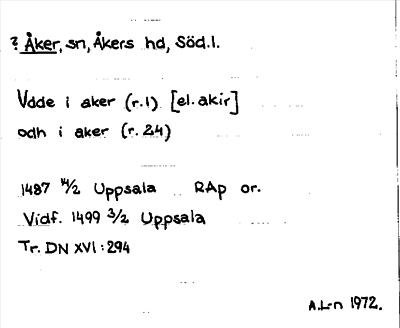 ? Åker, sn, Åkers hd, Söd.l.
Vdde i aker (r.1) [el. akir]
odh i aker (r. 24)
1487 14/2 Uppsala RAp or.
Vidf. 1499 3/2 Uppsala
Tr. DN XVI : 294
A.L-n 1972.